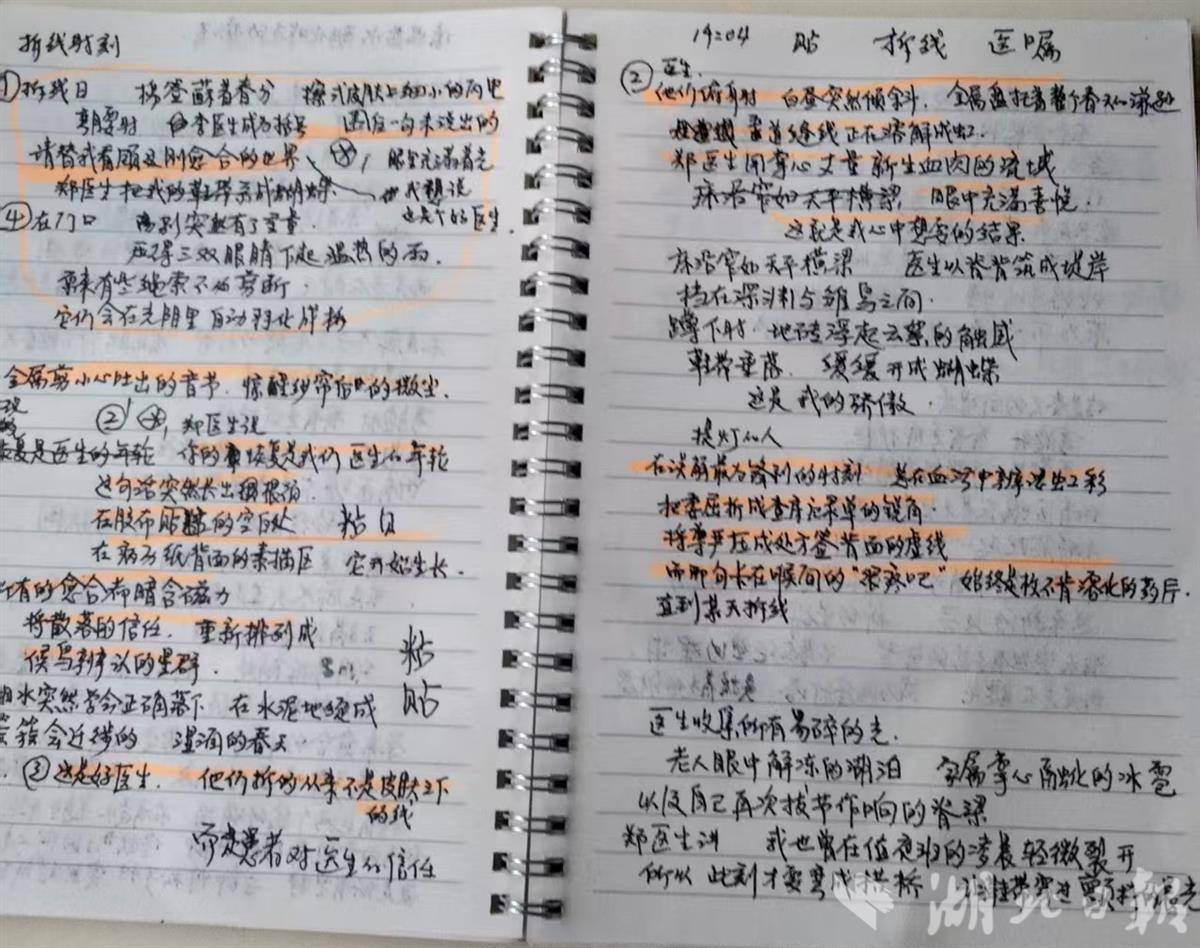 拆线时刻
①拆线日 搭登蘇着春分 擦式皮肤上细小的雨里
李医生成为括号 未说出的
请替我看顾这刚愈合的世界 眼里充满着光
郑医生把我的鞋带系成蝴蝶 也我想说
④在门口 离别突然有了重量 这是个好医生
压得三双眼睛下起温热的雨
原来有些绳索不必剪断
它们会在光阴里自动孵化成桥
金属剪小心吐出的音节 惊醒纱帘后的微尘
② 郑医生说
恢复是医生的年轮 你的恢复是我们医生的年轮
这句话突然长出根须
在胶布的空白处 粘贝
在病历纸背面的素描区 它开始生长
有的愈合都暗含磁力
将散落的信任 重新排列成
候鸟辨认的星群
粘
贴
冰突然学会正确落下 在水泥地绽成
会迁徙的 湿润的春天
③这是好医生 他们拆的从来不是皮肤之下
的线
而是患者对医生的信任
14:04 贴 拆线 医嘱
② 医生
他们俯身时 白昼突然倾斜 金属盘托着整个春天的
缝线正在溶解成虹
郑医生用掌心丈量新生血肉的流域
床沿窄如天平横梁 眼中充满喜悦
这就是我心中想要的结果
床沿窄如天平横梁 医生以脊背筑成堤岸
挡在深渊与雏鸟之间
蹲下时 地砖浮起云絮的触感
鞋带垂落 缓缓开成蝴蝶
这是我的骄傲
提灯的人
在误解最为锋利的时刻 总在血污中辨认出虹彩
把委屈折成查房记录单的锐角
将尊严压成处方签背面的虚线
而那句长在喉间的“很疼吧” 始终是枚不肯溶化的药片
直到某天拆线
医生收集所有易碎的光
老人眼中解冻的湖泊 家属掌心融化的冰雹
以及自己再次拔节作响的脊梁
郑医生讲 我也曾在值夜班的凌晨轻微裂开
所以 此刻才要弯成拱桥
湖北日报